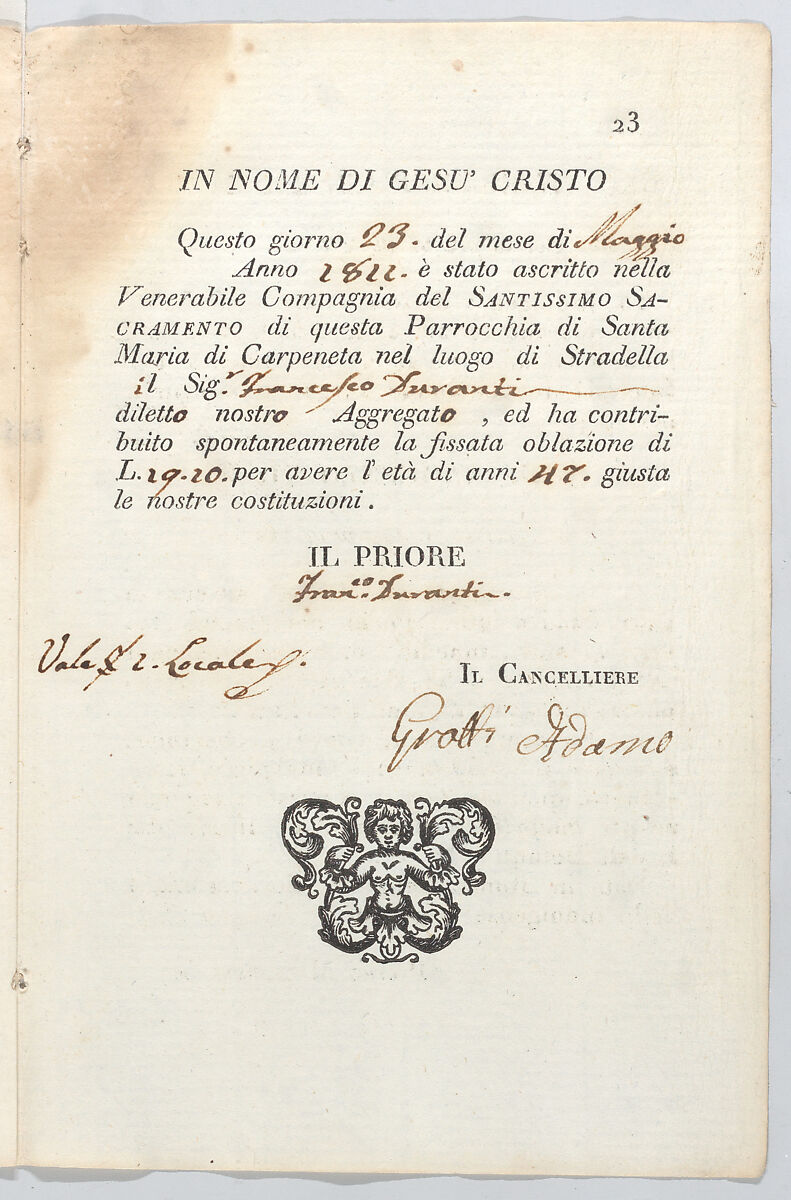 23
IN NOME DI GESU' CRISTO
Questo giorno 23. del mese di Maggio
Anno 1811. è stato ascritto nella
Venerabile Compagnia del SANTISSIMO SA-
CRAMENTO di questa Parrocchia di Santa
Maria di Carpeneta nel luogo di Stradella
il Sig.r Francesco Duranti
diletto nostro Aggregato , ed ha contri-
buito spontaneamente la fissata oblazione di
L. 19.10. per avere l'età di anni 47. giusta
le nostre costituzioni .
IL PRIORE
Fran.co Duranti.
Vale
IL CANCELLIERE
Grossi Adamo